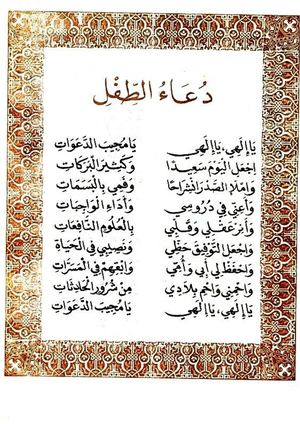 دُعَاءُ الطِّفْلِ
يَا إِلَهِي، يَا إِلَهِي يَا مُجِيبَ الدَّعَوَاتِ
اِجْعَلِ الْيَوْمَ سَعِيدًا وَكَثِيرَ الْبَرَكَاتِ
وَامْلَإِ الصَّدْرَ انْشِرَاحًا وَفَمِي بِالْبَسَمَاتِ
وَأَعِنِّي فِي دُرُوسِي وَأَدَاءِ الْوَاجِبَاتِ
وَأَنِرْ عَقْلِي وَقَلْبِي بِالْعُلُومِ النَّافِعَاتِ
وَاجْعَلِ التَّوْفِيقَ حَظِّي وَنَصِيبِي فِي الْحَيَاةِ
وَاحْفَظْ لِي أَبِي وَأُمِّي وَانْعِمْهُمْ فِي الْمَسَرَّاتِ
وَاحْمِنِي وَاحْمِ بِلَادِي مِنْ شُرُورِ الْحَادِثَاتِ
يَا إِلَهِي، يَا إِلَهِي يَا مُجِيبَ الدَّعَوَاتِ